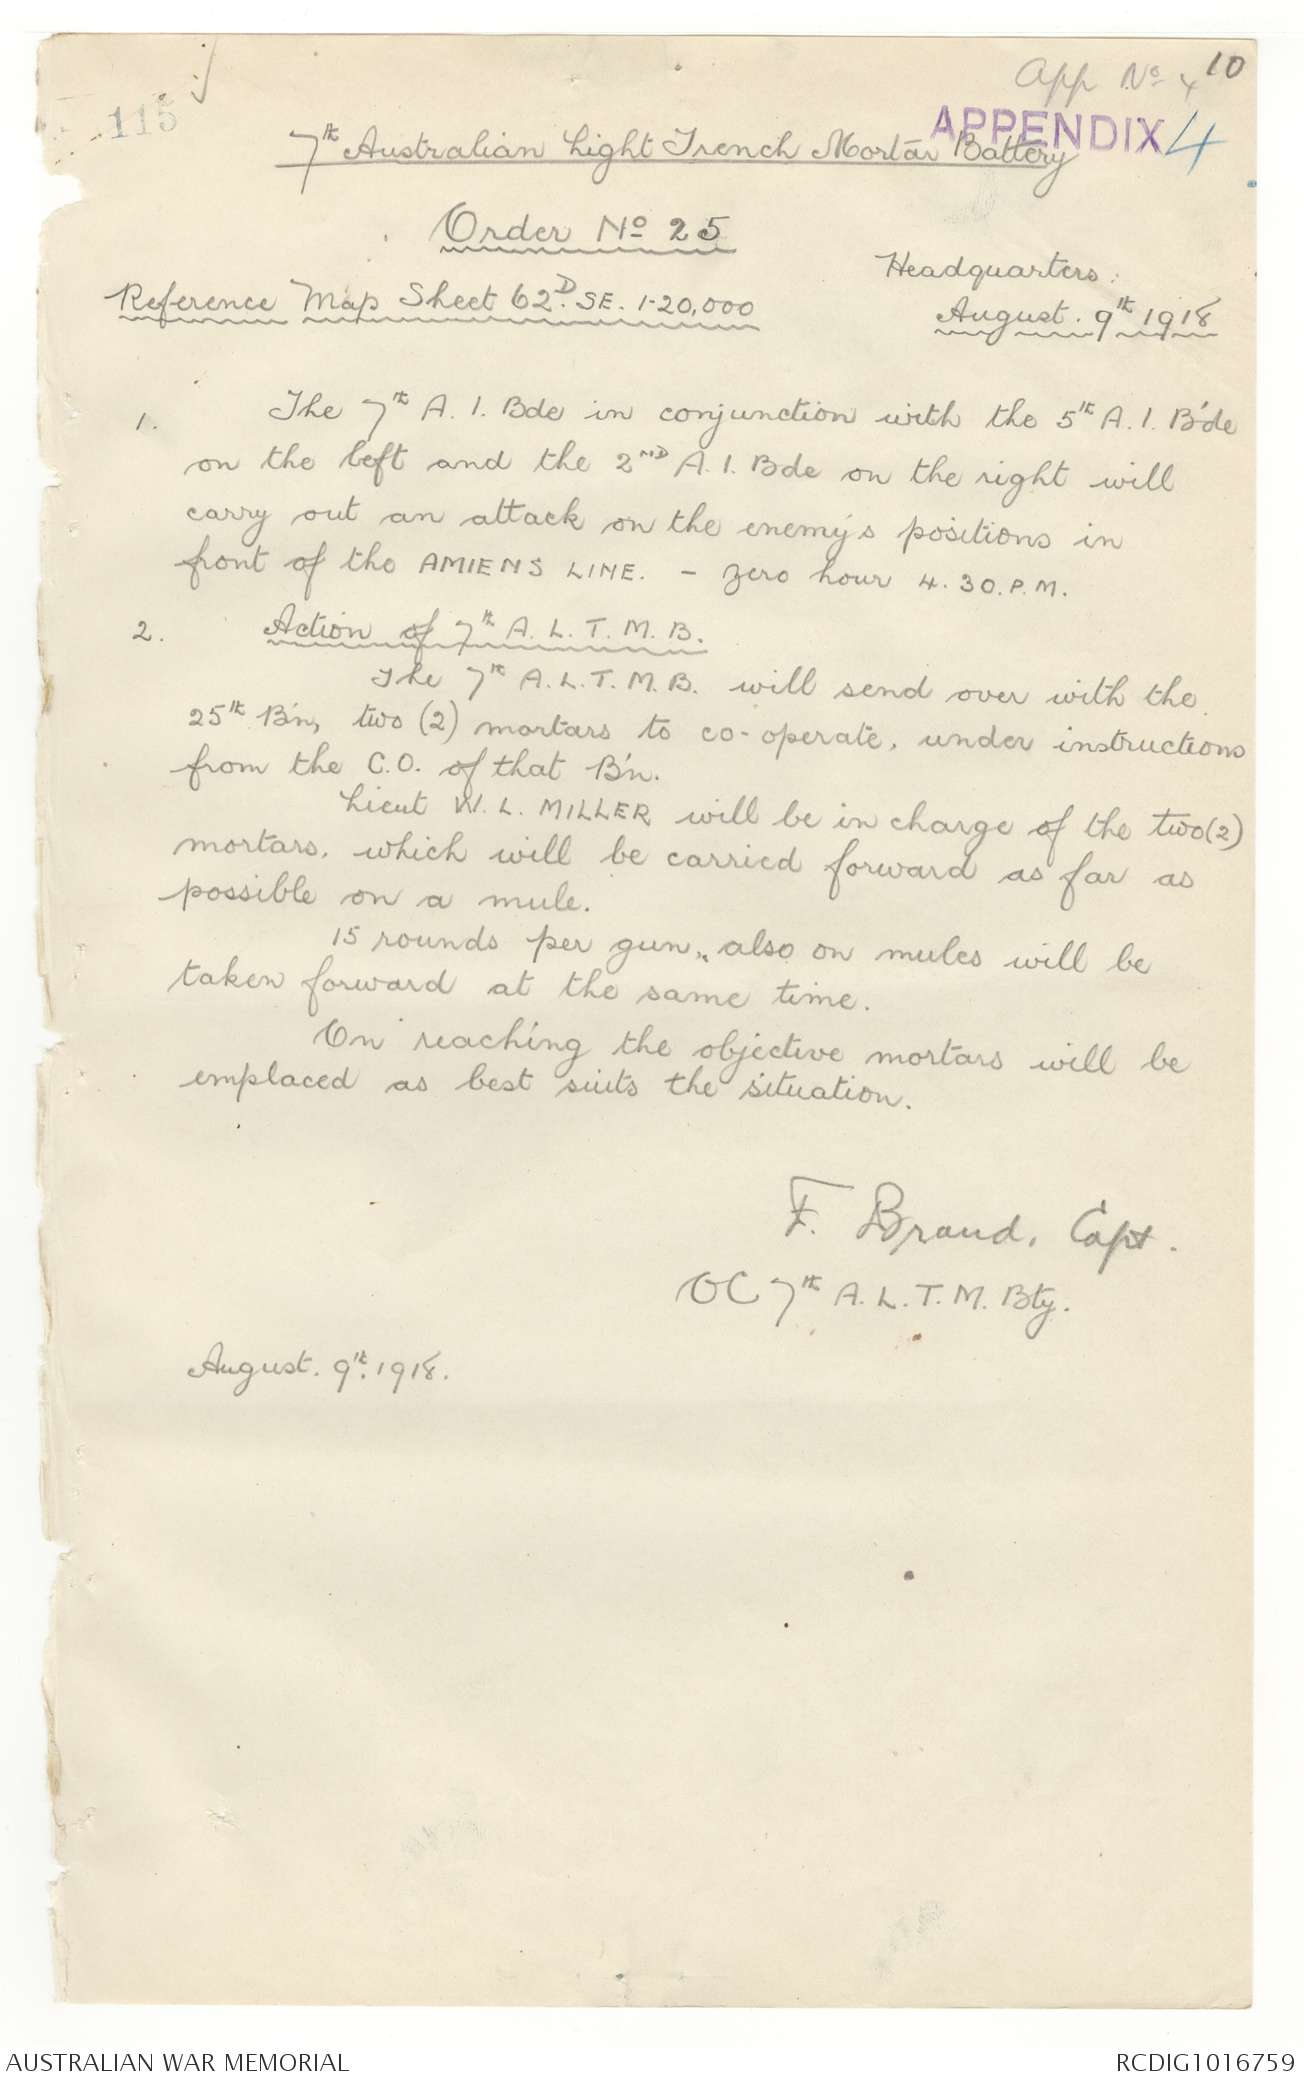 App No 4 10
115
APPENDIX 4
7th Australian Light Trench Mortar Battery
Order No 25
Headquarters:
Reference Map Sheet 62D. SE. 1-20,000
August. 9th 1918
1. The 7th A. I. Bde in conjunction with the 5th A. I. B'de
on the left and the 2ND A. I. Bde on the right will
carry out an attack on the enemy's positions in
front of the AMIENS LINE. - Zero hour 4.30.P.M.
2. Action of 7th A. L. T. M. B.
The 7th A.L.T.M.B. will send over with the
25th B'n, two (2) mortars to co-operate, under instructions
from the C.O. of that B'n.
Lieut W. L. MILLER will be in charge of the two (2)
mortars, which will be carried forward as far as
possible on a mule.
15 rounds per gun, also on mules will be
taken forward at the same time.
On reaching the objective mortars will be
emplaced as best suits the situation.
F. Braud, Capt.
OC 7th A. L. T. M. Bty.
August. 9th. 1918.
AUSTRALIAN WAR MEMORIAL
RCDIG1016759